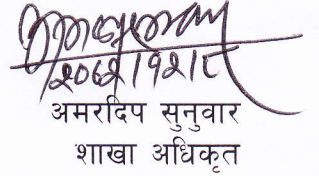 २०६२।१२।८
अमरदिप सुनुवार
शाखा अधिकृत